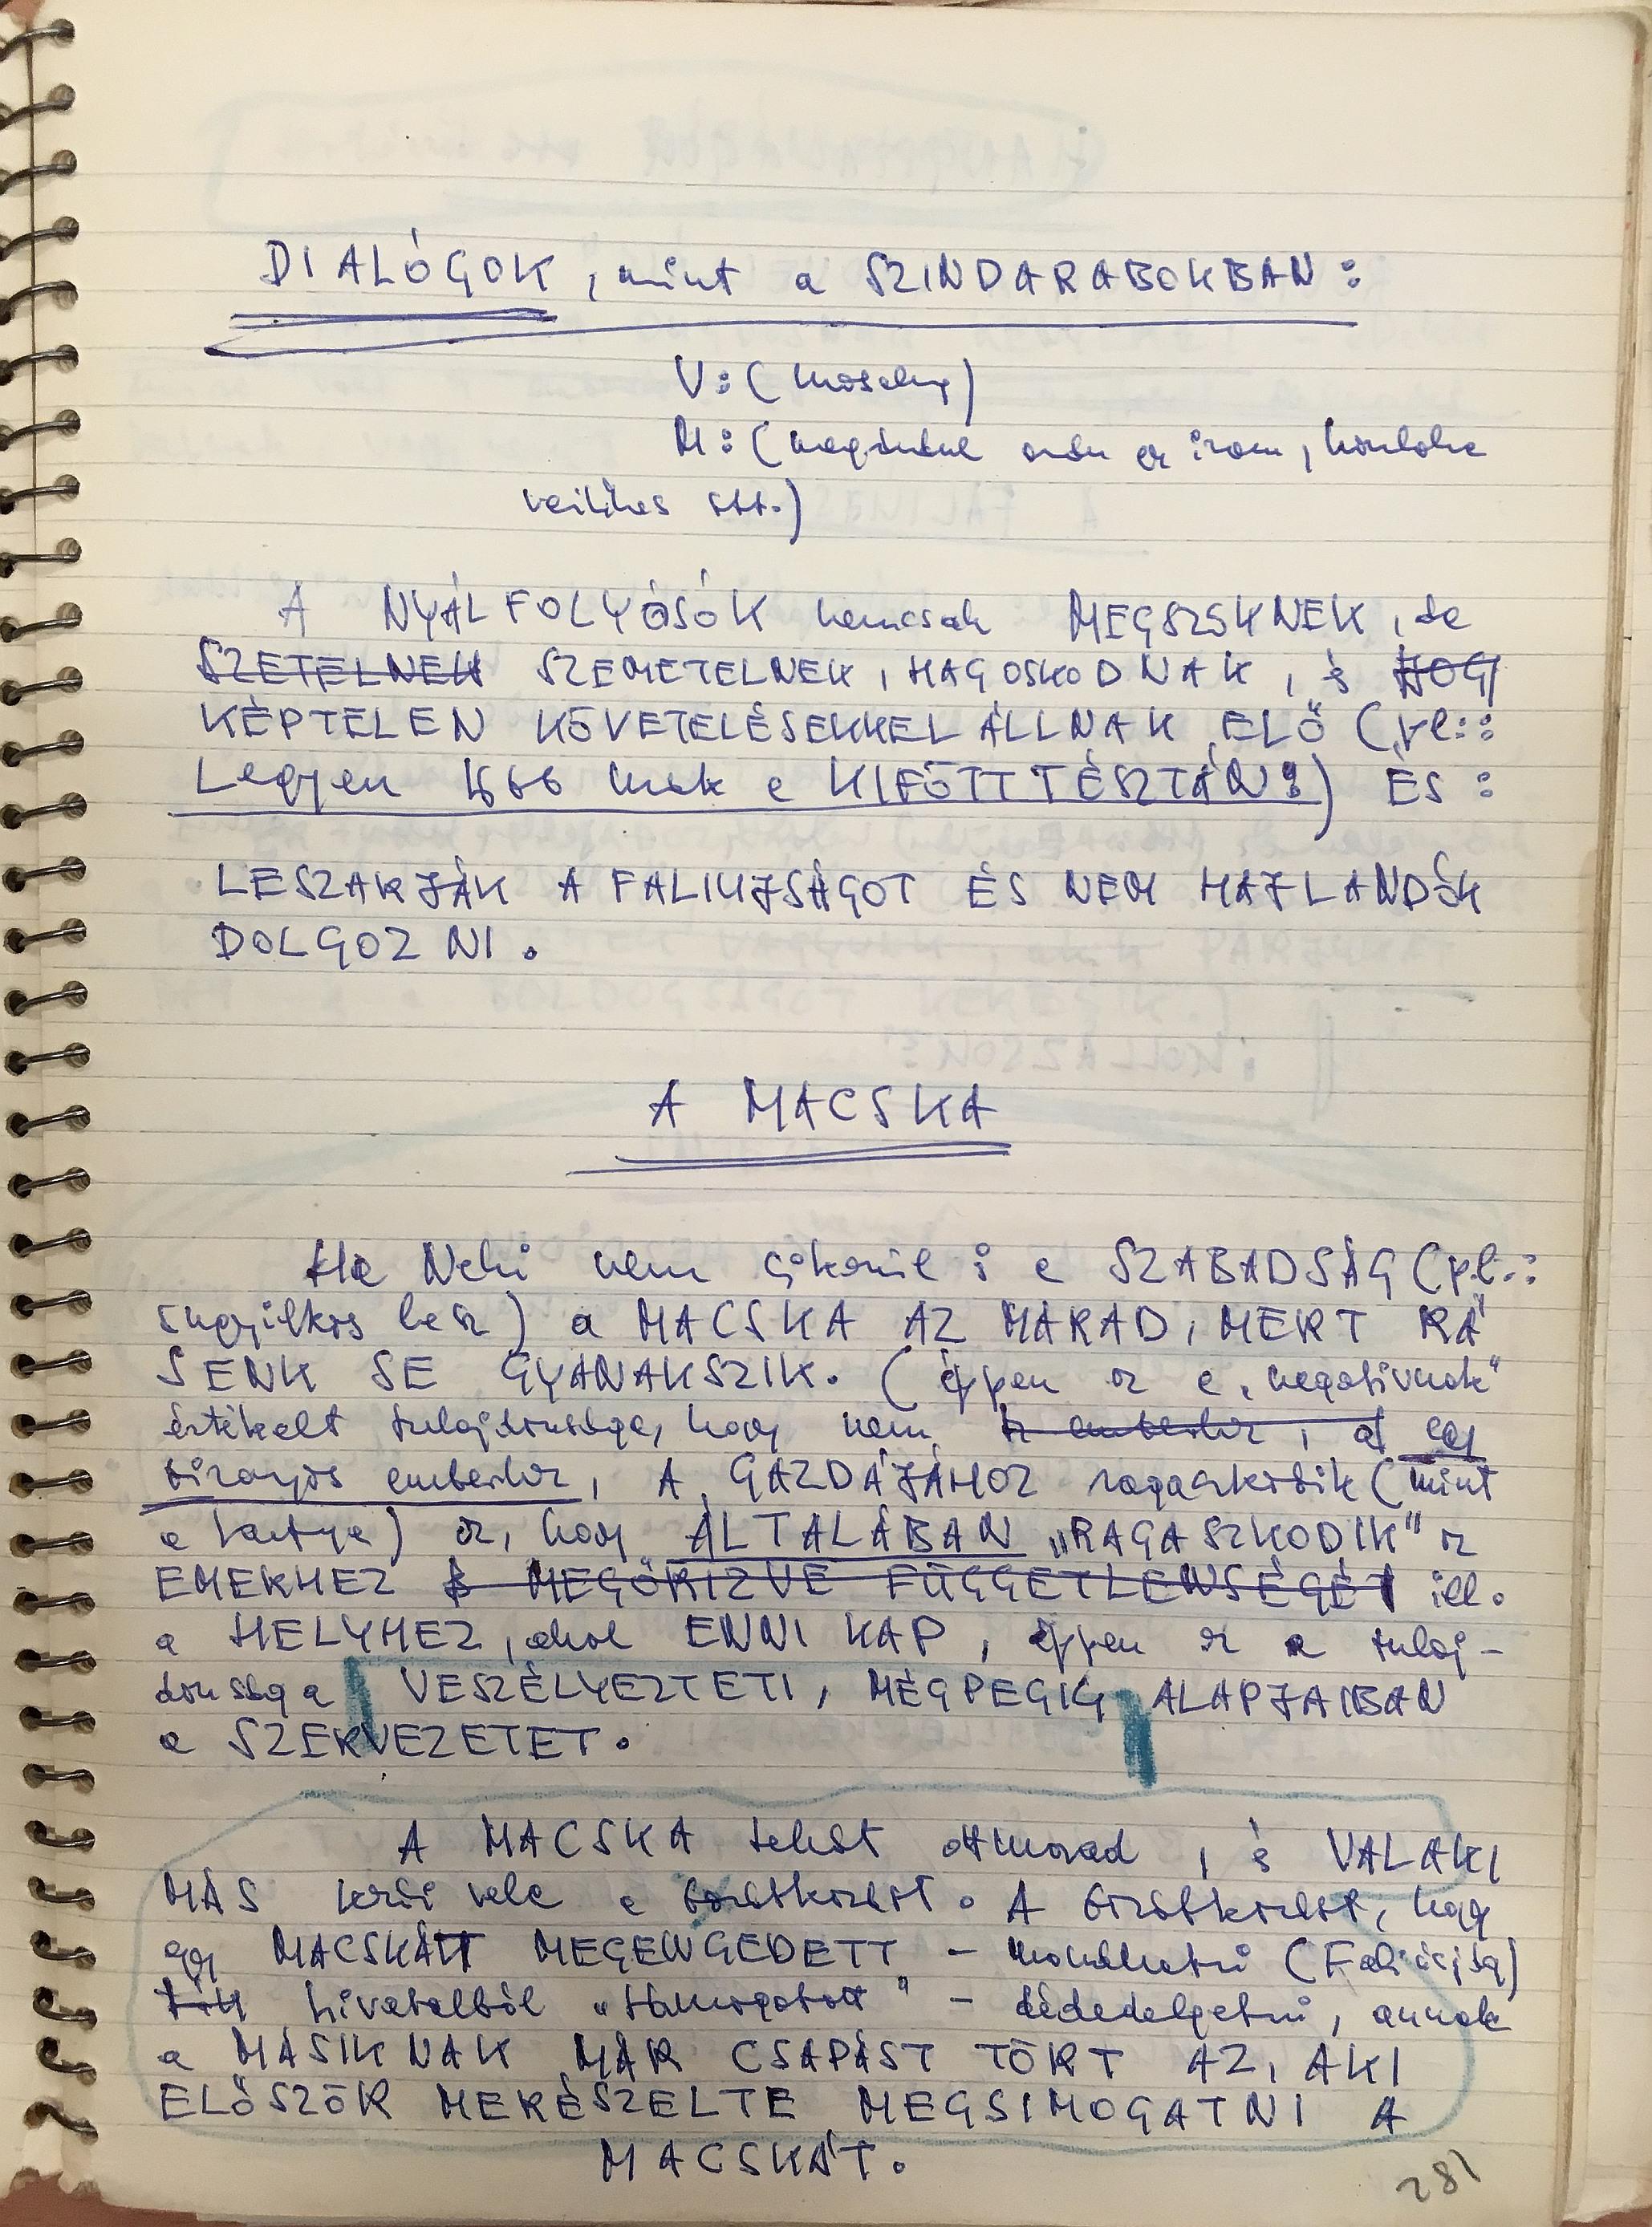 DIALÓGOK, mint a SZINDARABOKBAN:
V: (mosoly)
M: (megindul
stb.)
A NYÁLFOLYÓSÓK nemcsak MEGSZSKNEK, de
SZETELNEK SZEMETELNEK, HAGOSKODNAK, és HOGY
KÉPTELEN KÖVETELÉSEKKEL ÁLLNAK ELŐ (pl.:
Legyen több mák a KIFŐTT TÉSZTÁN!) ÉS:
LESZAKJÁK A FALIUJSÁGOT ÉS NEM HAJLANDÓK
DOLGOZNI.
A MACSKA
Ha Neki nem sikerül is a SZABADSÁG (pl.:
öngyilkos lesz) a MACSKA AZ MARAD, MERT RÁ
SENK SE GYANAKSZIK. (éppen az a „negatívnak"
értékelt tulajdonsága, hogy nem az emberhez, a egy
bizonyos emberhez, A GAZDÁJÁHOZ ragaszkodik (mint
a kutya) az, hogy ÁLTALÁBAN „RAGASZKODIK" az
EMEKHEZ és MEGŐRIZVE FÜGGETLENSÉGÉT ill.
a HELYHEZ, ahol ENNI KAP, éppen ez a tulaj-
donsága VESZÉLYEZTETI, MÉGPEGIG ALAPJAIBAN
a SZERVEZETET.
A MACSKA tehát ottmarad, és VALAKI
MÁS kezdi vele a barátkozást. A barátkozást, hogy
egy MACSKÁTT MEGENGEDETT - (Faliújság)
hivatalból „támogatott" - dédedelgetni, annak
a MÁSIKNAK MÁR CSAPÁST TÖRT AZ, AKI
ELŐSZÖR MERÉSZELTE MEGSIMOGATNI A
MACSKÁT.
281